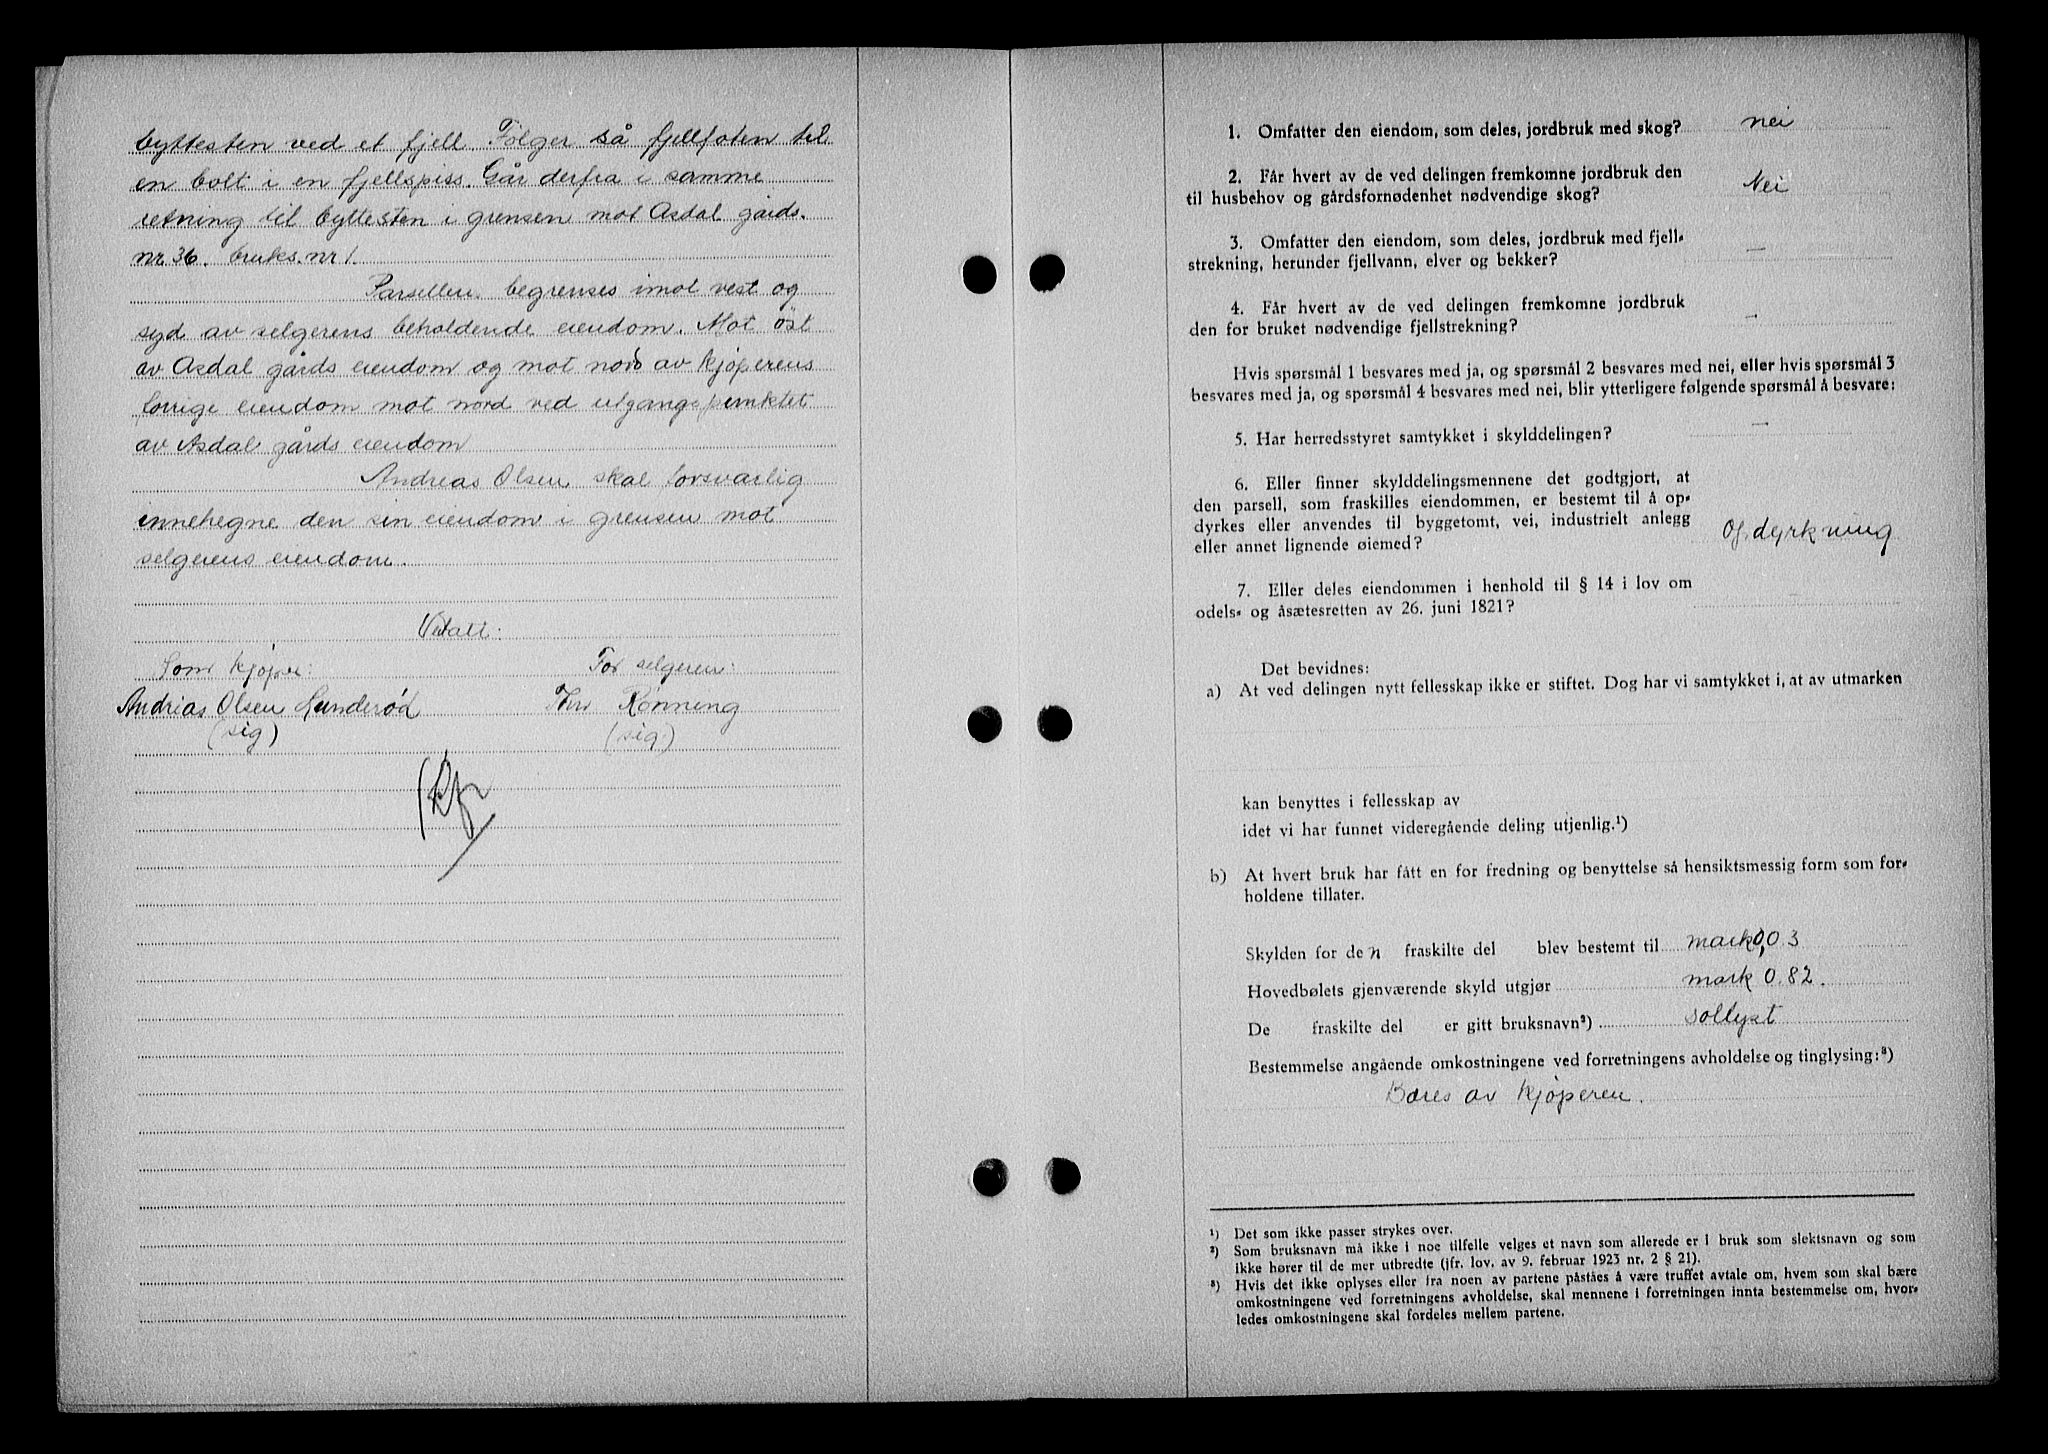 byttesten ved et fjell. Følger så fjellfoten til
en bolt i en fjellspiss. Går derfra i samme
retning til byttesten i grensen mot Asdal gårds.
nr 36. bruks. nr 1.
Parsellen begrenses imot vest og
syd av selgerens beholdende eiendom. Mot øst
av Asdal gårds eiendom og mot nord av kjøperens
forrige eiendom mot nord ved utgangspunktet
av Asdal gårds eiendom
Andreas Olsen skal forsvarlig
innehegne den sin eiendom i grensen mot
selgerens eiendom.
Vidati:
Som kjøper: For selgeren:
Andrias Olsen Lunderød Thv Rønning
(sig) (sig.)
1. Omfatter den eiendom, som deles, jordbruk med skog? nei
2. Får hvert av de ved delingen fremkomne jordbruk den
til husbehov og gårdsfornødenhet nødvendige skog? Nei
3. Omfatter den eiendom, som deles, jordbruk med fjell-
strekning, herunder fjellvann, elver og bekker? —
4. Får hvert av de ved delingen fremkomne jordbruk
den for bruket nødvendige fjellstrekning? —
Hvis spørsmål 1 besvares med ja, og spørsmål 2 besvares med nei, eller hvis spørsmål 3
besvares med ja, og spørsmål 4 besvares med nei, blir ytterligere følgende spørsmål å besvare:
5. Har herredsstyret samtykket i skylddelingen? —
6. Eller finner skylddelingsmennene det godtgjort, at
den parsell, som fraskilles eiendommen, er bestemt til å op-
dyrkes eller anvendes til byggetomt, vei, industrielt anlegg
eller annet lignende øiemed? Opdyrkning
7. Eller deles eiendommen i henhold til § 14 i lov om
odels- og åsætesretten av 26. juni 1821? —
Det bevidnes:
a) At ved delingen nytt fellesskap ikke er stiftet. Dog har vi samtykket i, at av utmarken
kan benyttes i fellesskap av
idet vi har funnet videregående deling utjenlig.¹)
b) At hvert bruk har fått en for fredning og benyttelse så hensiktsmessig form som for-
holdene tillater.
Skylden for den fraskilte del blev bestemt til mark 0,03
Hovedbølets gjenværende skyld utgjør mark 0.82.
De fraskilte del er gitt bruksnavn²) Sollyst
Bestemmelse angående omkostningene ved forretningens avholdelse og tinglysing:³)
Bæres av kjøperen.
¹) Det som ikke passer strykes over.
²) Som bruksnavn må ikke i noe tilfelle velges et navn som allerede er i bruk som slektsnavn og som
ikke hører til de mer utbredte (jfr. lov. av 9. februar 1923 nr. 2 § 21).
³) Hvis det ikke oplyses eller fra noen av partene påståes å være truffet avtale om, hvem som skal bære
omkostningene ved forretningens avholdelse, skal mennene i forretningen innta bestemmelse om, hvor-
ledes omkostningene skal fordeles mellem partene.